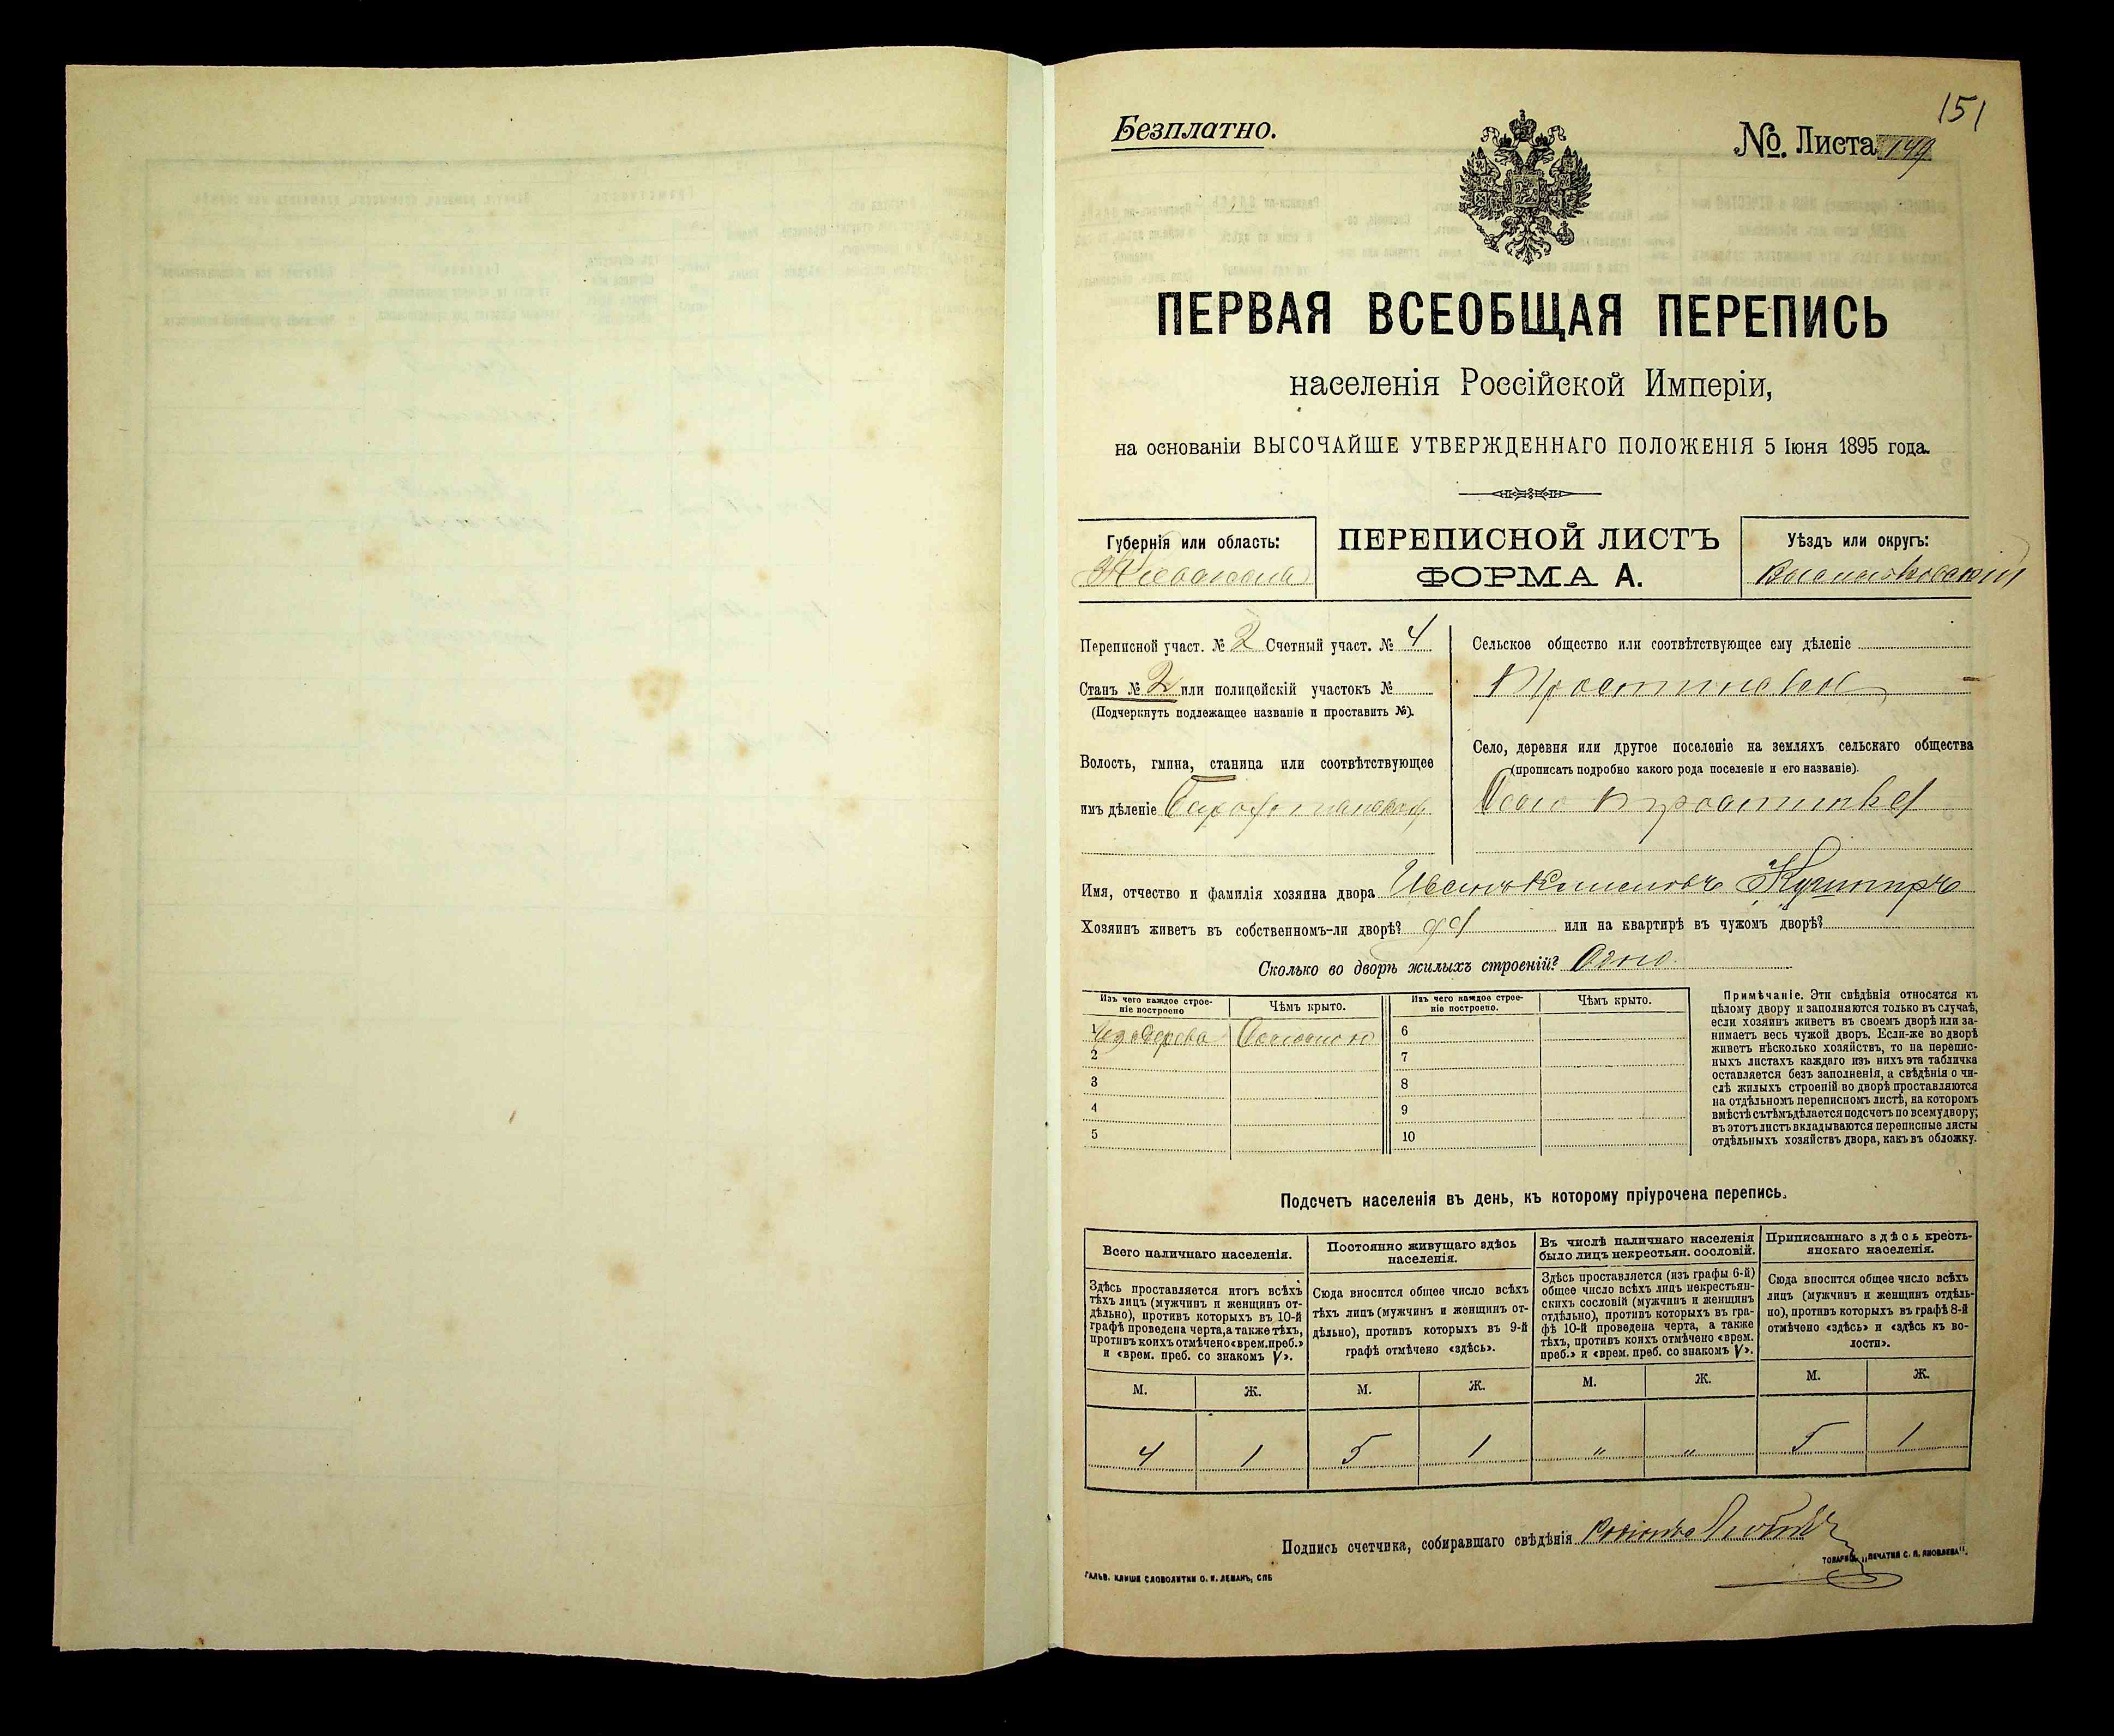 151
Безплатно.
№. Листа 149
ПЕРВАЯ ВСЕОБЩАЯ ПЕРЕПИСЬ
населенія Россійской Имперіи,
на основаніи ВЫСОЧАЙШЕ УТВЕРЖДЕННАГО ПОЛОЖЕНІЯ 5 Іюня 1895 года.
Губернія или область:
Кіевская
ПЕРЕПИСНОЙ ЛИСТЪ
ФОРМА А.
Уѣздъ или округъ:
Васильковскій
Переписной участ. № 2 Счетный участ. № 4
Станъ № 2 или полицейскій участокъ №
(Подчеркнуть подлежащее названіе и проставить №).
Волость, гмина, станица или соотвѣтствующее
имъ дѣленіе
Сельское общество или соотвѣтствующее ему дѣленіе
Село, деревня или другое поселеніе на земляхъ сельскаго общества
(прописать подробно какого рода поселеніе и его названіе).
Село
Имя, отчество и фамилія хозяина двора Иванъ Кушниръ
Хозяинъ живетъ въ собственномъ-ли дворѣ? да или на квартирѣ въ чужомъ дворѣ?
Сколько во дворѣ жилыхъ строеній? Одно
Изъ чего каждое строе-
ніе построено
Чѣмъ крыто.
Изъ чего каждое строе-
ніе построено.
Чѣмъ крыто.
1 Изъ дерева Соломою
2
3
4
5
6
7
8
9
10
Примѣчаніе. Эти свѣдѣнія относятся къ
цѣлому двору и заполняются только въ случаѣ,
если хозяинъ живетъ въ своемъ дворѣ или за-
нимаетъ весь чужой дворъ. Если-же во дворѣ
живетъ нѣсколько хозяйствъ, то на перепис-
ныхъ листахъ каждаго изъ нихъ эта табличка
оставляется безъ заполненія, а свѣдѣнія о чи-
слѣ жилыхъ строеній во дворѣ проставляются
на отдѣльномъ переписномъ листѣ, на которомъ
вмѣстѣ съ тѣмъ дѣлается подсчетъ по всему двору;
въ этотъ листъ вкладываются переписные листы
отдѣльныхъ хозяйствъ двора, какъ въ обложку.
Подсчетъ населенія въ день, къ которому пріурочена перепись.
Всего наличнаго населенія.
Здѣсь проставляется итогъ всѣхъ
тѣхъ лицъ (мужчинъ и женщинъ от-
дѣльно), противъ которыхъ въ 10-й
графѣ проведена черта, а также тѣхъ,
противъ коихъ отмѣчено «врем. преб.»
и «врем. преб. со знакомъ V».
Постоянно живущаго здѣсь
населенія.
Сюда вносится общее число всѣхъ
тѣхъ лицъ (мужчинъ и женщинъ от-
дѣльно), противъ которыхъ въ 9-й
графѣ отмѣчено «здѣсь».
Въ числѣ наличнаго населенія
было лицъ некрестьян. сословій.
Здѣсь проставляется (изъ графы 6-й)
общее число всѣхъ лицъ некрестьян-
скихъ сословій (мужчинъ и женщинъ
отдѣльно), противъ которыхъ въ гра-
фѣ 10-й проведена черта, а также
тѣхъ, противъ коихъ отмѣчено «врем.
преб.» и «врем. преб. со знакомъ V».
Приписаннаго здѣсь кресть-
янскаго населенія.
Сюда вносится общее число всѣхъ
лицъ (мужчинъ и женщинъ отдѣль-
но), противъ которыхъ въ графѣ 8-й
отмѣчено «здѣсь» и «здѣсь къ во-
лости».
М. Ж. М. Ж. М. Ж. М. Ж.
4 1 5 1 " " 5 1
Подпись счетчика, собиравшаго свѣдѣнія
ГАЛЬВ. КЛИШЕ СЛОВОЛИТНИ О. И. ЛЕМАНЪ, СПБ
ТОВАРИЩ. „ПЕЧАТНЯ С. П. ЯКОВЛЕВА".